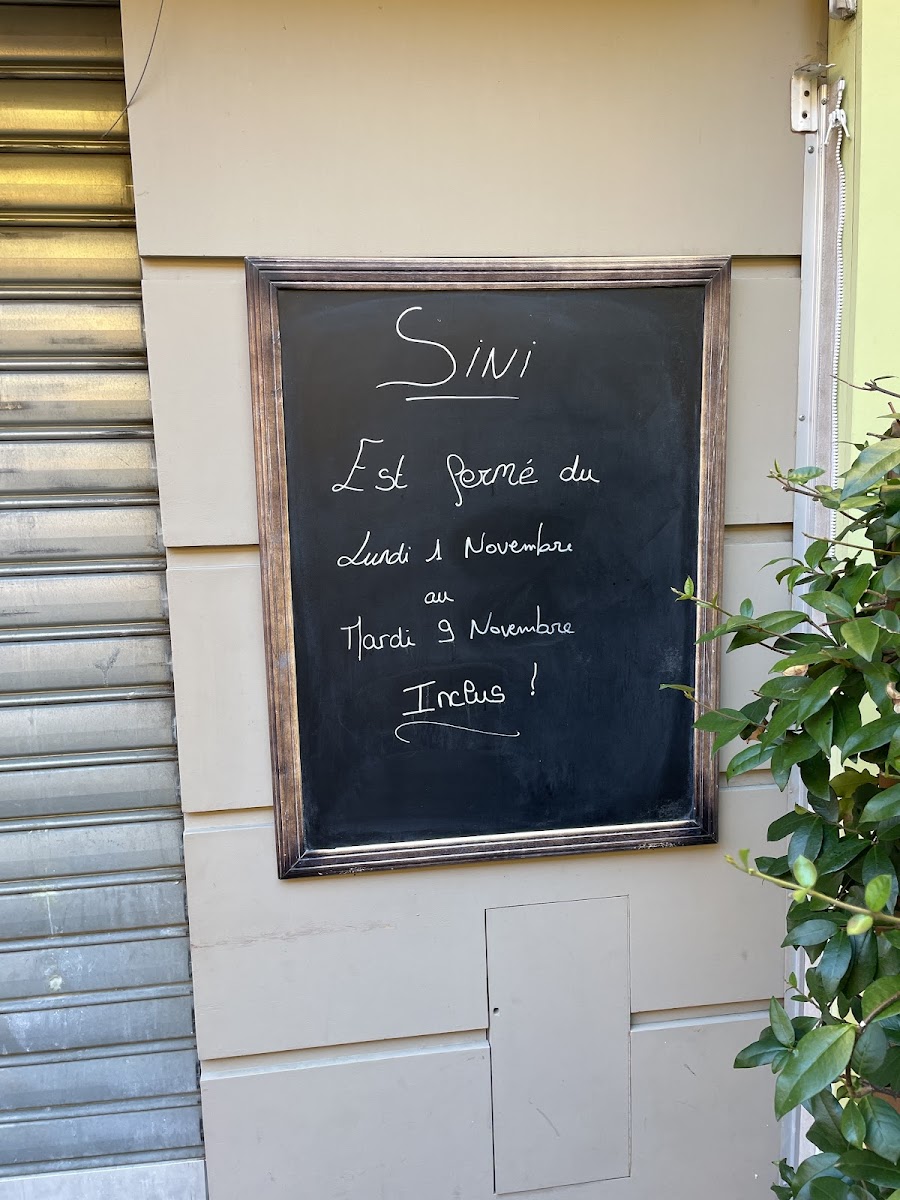 Sini
Est fermé du
Lundi 1 Novembre
au
Mardi 9 Novembre
Inclus !